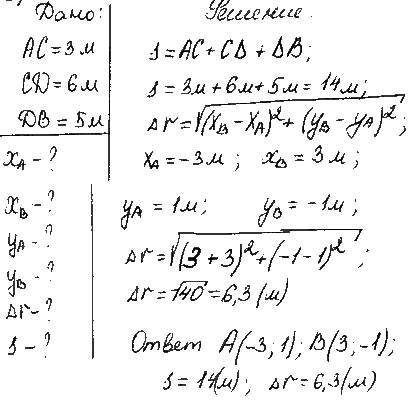 Дано:
AC = 3 м
CD = 6 м
DB = 5 м
x_A - ?
x_B - ?
y_A - ?
y_B - ?
Δr - ?
s - ?
Решение.
s = AC + CD + DB;
s = 3м + 6м + 5м = 14м;
Δr = √(x_B - x_A)² + (y_B - y_A)²;
x_A = -3м; x_B = 3м;
y_A = 1м; y_B = -1м;
Δr = √(3 + 3)² + (-1 - 1)²;
Δr = √40 = 6,3 (м)
Ответ A(-3; 1); B(3; -1);
s = 14(м); Δr = 6,3(м)